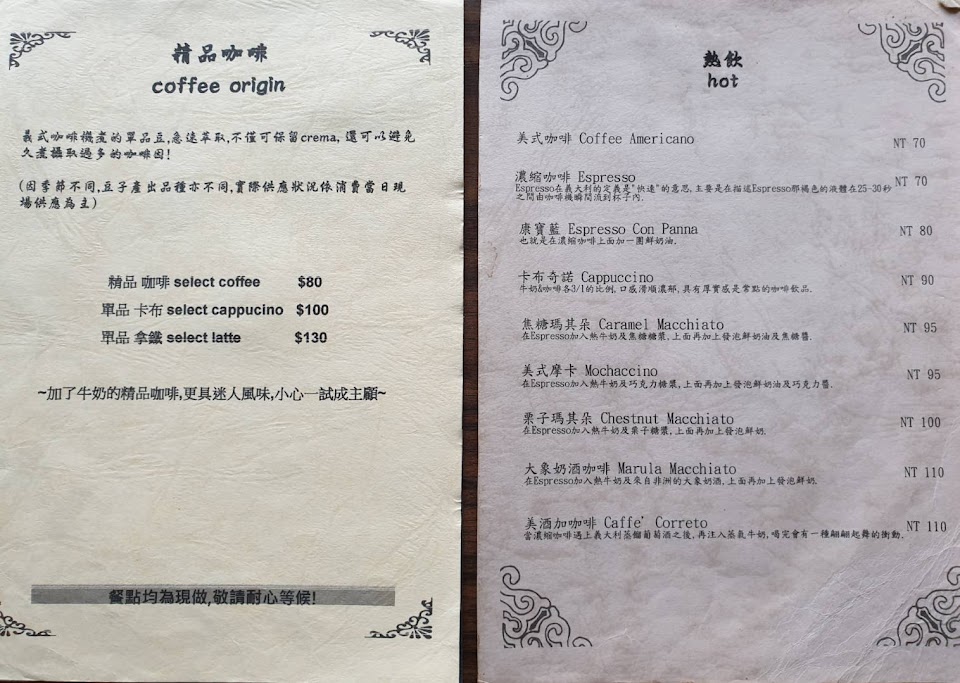 精品咖啡
coffee origin
義式咖啡機煮的單品豆,急速萃取,不僅可保留crema, 還可以避免
久煮攝取過多的咖啡因!
(因季節不同,豆子產出品種亦不同,實際供應狀況依消費當日現
場供應為主)
精品 咖啡 select coffee $80
單品 卡布 select cappucino $100
單品 拿鐵 select latte $130
~加了牛奶的精品咖啡,更具迷人風味,小心一試成主顧~
餐點均為現做,敬請耐心等候!
熱飲
hot
美式咖啡 Coffee Americano NT 70
濃縮咖啡 Espresso NT 70
Espresso在義大利的定義是"快速"的意思,主要是在描述Espresso那褐色的液體在25-30秒
之間由咖啡機瞬間流到杯子內.
康寶藍 Espresso Con Panna NT 80
也就是在濃縮咖啡上面加一團鮮奶油.
卡布奇諾 Cappuccino NT 90
牛奶&咖啡各3/1的比例,口感滑順濃郁,具有厚實感是常點的咖啡飲品.
焦糖瑪其朵 Caramel Macchiato NT 95
在Espresso加入熱牛奶及焦糖糖漿,上面再加上發泡鮮奶油及焦糖醬.
美式摩卡 Mochaccino NT 95
在Espresso加入熱牛奶及巧克力糖漿,上面再加上發泡鮮奶油及巧克力醬.
栗子瑪其朵 Chestnut Macchiato NT 100
在Espresso加入熱牛奶及栗子糖漿,上面再加上發泡鮮奶.
大象奶酒咖啡 Marula Macchiato NT 110
在Espresso加入熱牛奶及來自非洲的大象奶酒,上面再加上發泡鮮奶.
美酒加咖啡 Caffe' Correto NT 110
當濃縮咖啡遇上義大利蒸餾葡萄酒之後,再注入蒸氣牛奶,喝完會有一種翩翩起舞的衝動.